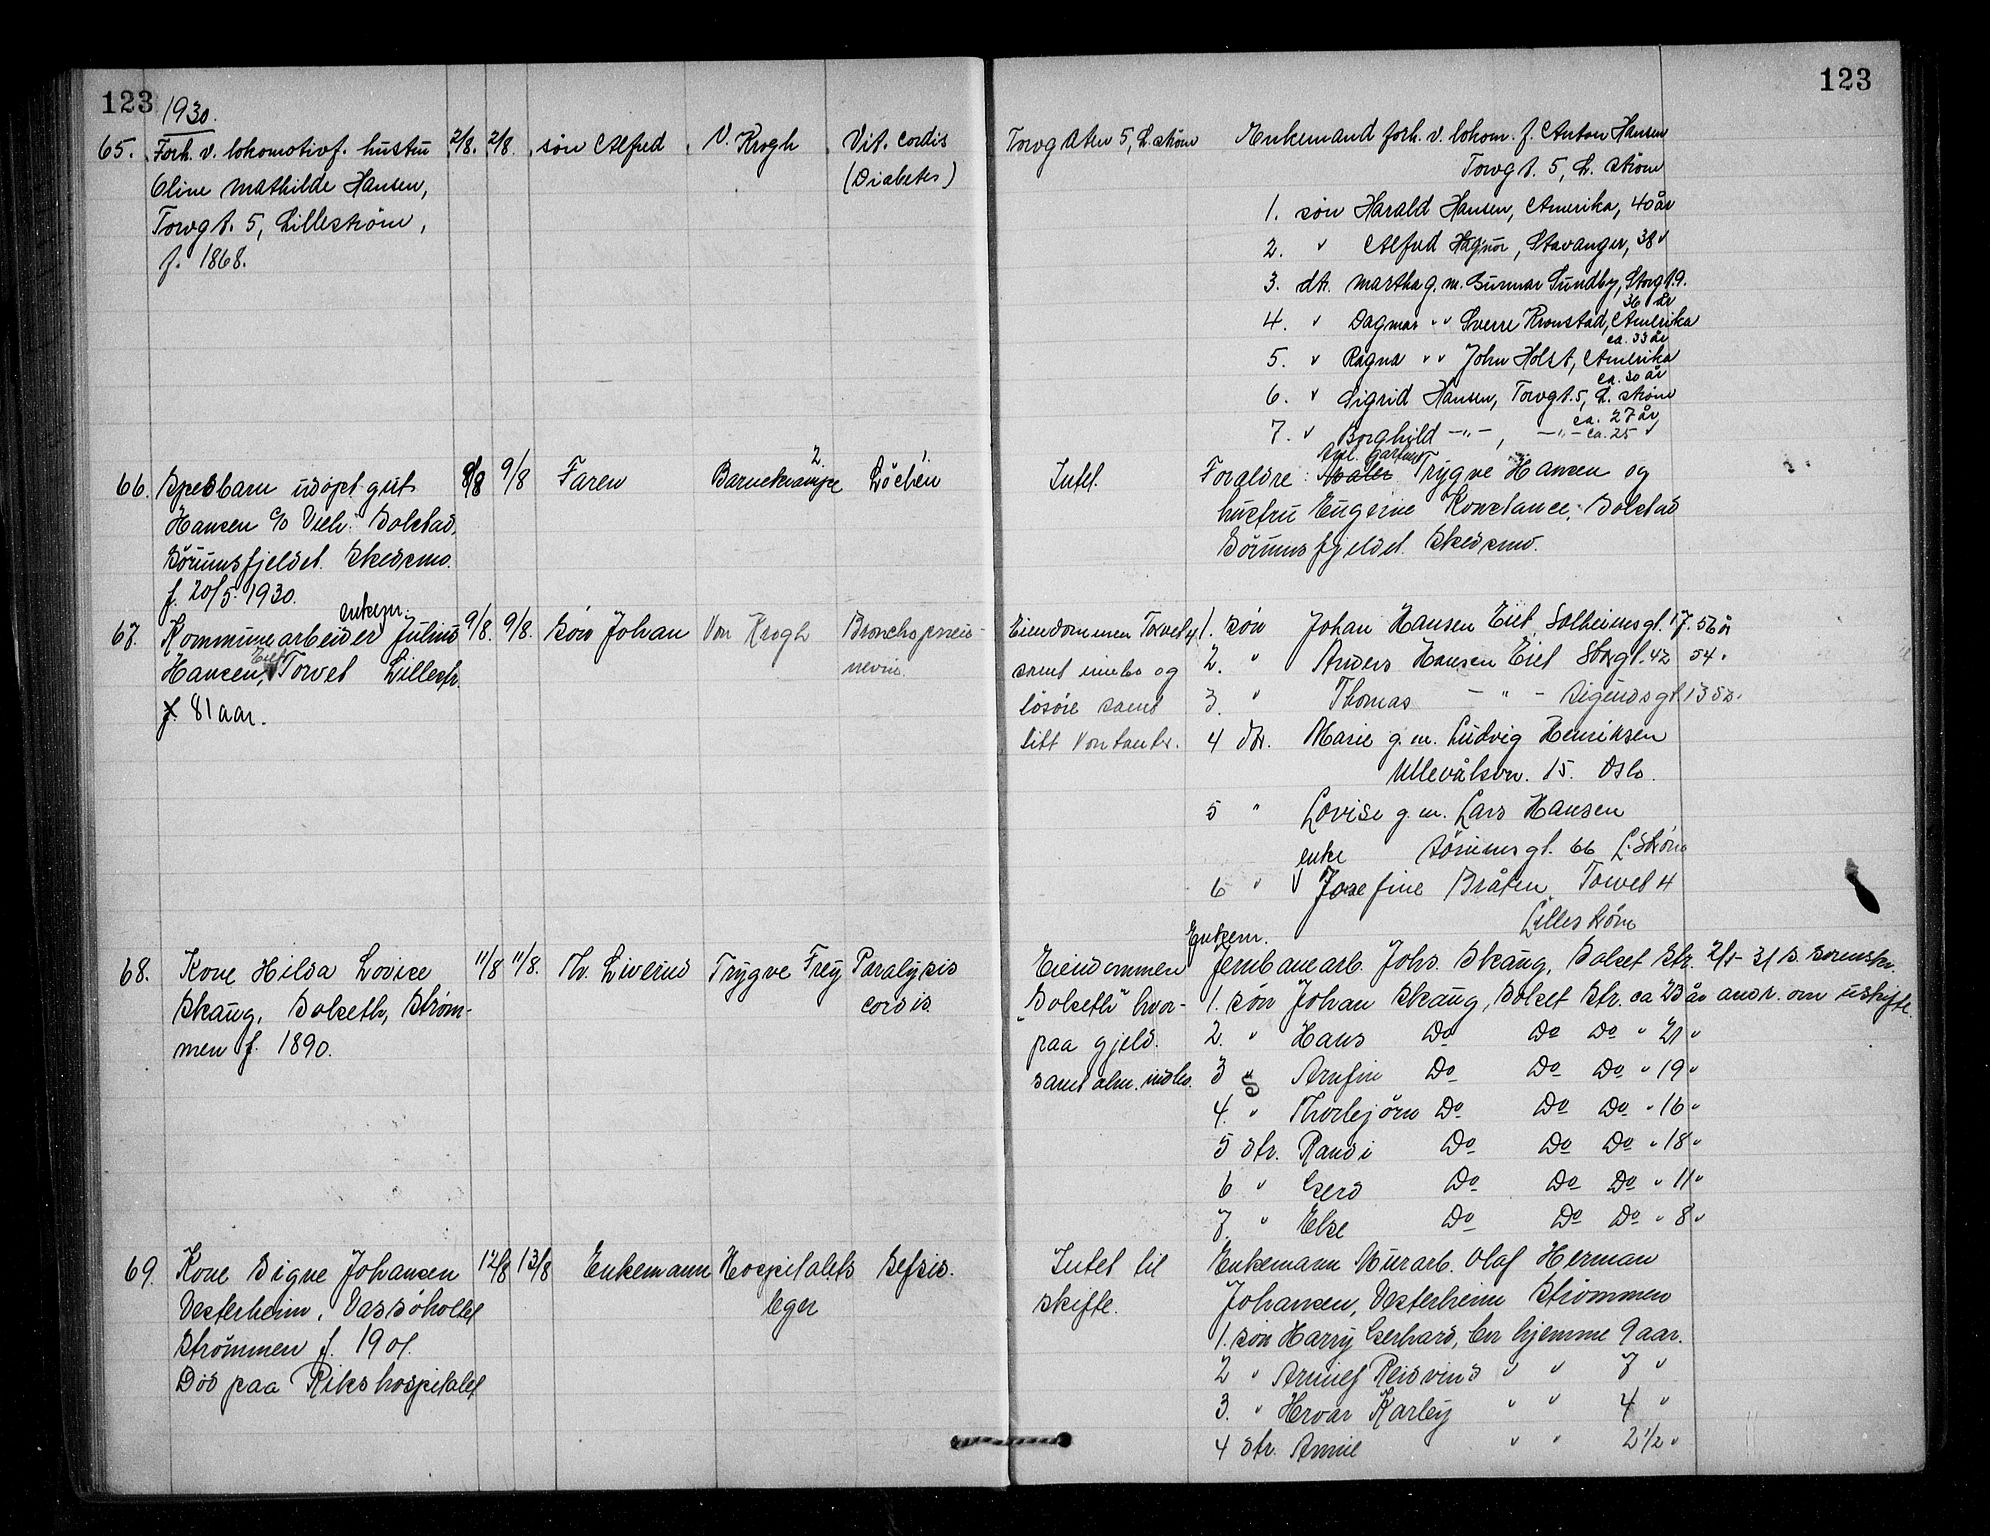 123
1930.
65. Forh. v. lokomotivf. hustru 2/8. 2/8. søn Alfred V. Krogh Vit. cordis
Oline Mathilde Hansen, (Diabetes)
Torvgt. 5, Lillestrøm,
f. 1868.
66. Spedbarn udøpt gut 8/8 9/8 Faren 2. 1.
Hansen c/o Vilh. Bolstad,
Sörumsfjeldet. Skedsmo.
f. 20/5 1930.
enkem.
67. Kommunearbeider Julius 9/8. 9/8. Søn Johan Von Krogh Bronchopneu-
Hansen, Eiet Torvet Lillestr. monie.
f. 81 aar.
68. Kone Hilda Lovise 11/8 11/8. Th. Liverud Trygve Frey Paralysis
Skaug, Bolseth, Strøm- cordis.
men f. 1890.
69. Kone Signe Johansen 12/8 13/8 Enkemann Hospitalets Sepsis.
Vesterheim, leger
Strømmen f. 1901.
Död paa Rikshospitalet
123
Torvgaten 5, L. strøm Enkemand forh. v. lokom. f. Anton Hansen
Torvgt. 5, L. strøm
1. søn Harald Hansen, Amerika, 40 år
2. " Alfred Stavanger, 38 "
3. dt. Martha g. m. Gunnar Sundby, Storgt. 9.
36 år
4. " Dagmar " " Sverre Kronstad, Amerika
ca. 33 år
5. " Ragna " " John Holst, Amerika
ca. 30 år
6. " Sigrid Hansen, Torvgt. 5, L. strøm
ca. 27 år
7. " Borghild -"-, -"- ca. 25 "
Intet. Foraldre: Trygve Hansen og
hustru Eugenie Konstance, Bolstad
Sörumsfjeldet. Skedsmo.
Eiendommen Torvet 4 1. Søn Johan Hansen Eiet, Solheimsgt. 17. 56 år
samt innbo og 2. " Anders Hansen Eiet Storgt. 42 54 "
lösöre samt 3. " Thomas -"- 13 52 "
litt kontanter. 4 dtr. Marie g. m. Ludvig Henriksen
Ullevålsvn. 15. Oslo.
5 " Lovise g. m. Lars Hansen
Sörumsgt. 66 L. Strøm
enke
6 " Josefine Bråten Torvet 4
Lillestrøm
Enkem.
Eiendommen Jernbanearb. Johs. Skaug, Bolset Str.
"Bolseth" hvor- 1. Søn Johan Skaug, Bolset Str. ca 23 år
paa gjeld. 2. " Hans Do Do Do " 21 "
samt alm. indbo. 3 " Arnfin Do Do Do " 19 "
4. " Thorbjørn Do Do Do " 16 "
5 dtr. Randi Do Do Do " 18 "
6 " Gerd Do Do Do " 11 "
7. " Else Do Do Do " 8 "
Intet til Enkemann Murarb. Olaf Herman
skifte. Johansen, Vesterheim Strømmen
1. Søn Harry Gerhard, bor hjemme 9 aar.
2 " Reidvind " " 7 "
3. " Karley " " 4 "
4 dtr. Annie " " 2 1/2 "